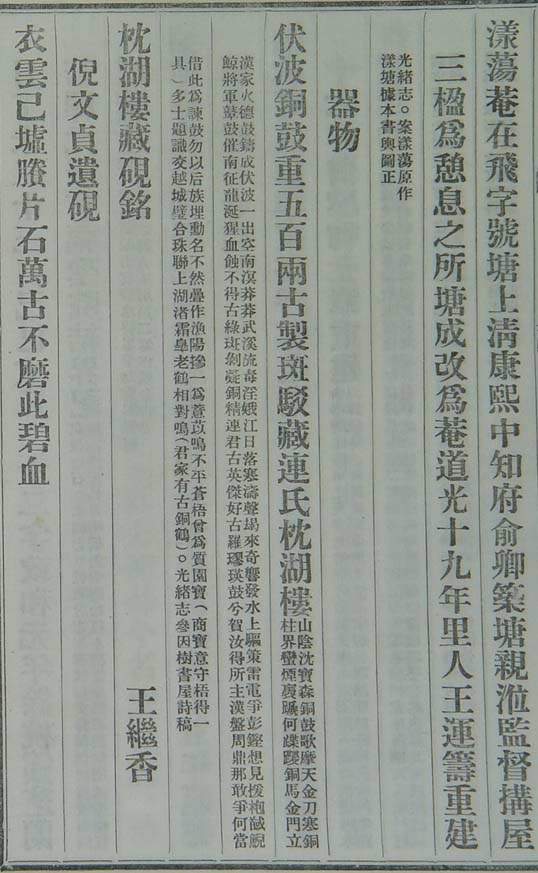 漾蕩菴在飛字號塘上清康熙中知府俞卿築塘親涖監督搆屋
三楹爲憩息之所塘成改爲菴道光十九年里人王運籌重建
光緒志○案漾蕩原作
漾塘據本書輿圖正
器物
伏波銅鼓重五百兩古製斑駁藏連氏枕湖樓
山陰沈寶森銅鼓歌摩天金刀塞銅
柱界蠻煙裏飈何蹀躞銅馬金門立
漢家火德鼓鑄成伏波一出空南溟莽莽武溪流毒淫娥江日落寒濤聲朅來奇響發水上驅策雷電爭彭鏗想見援枹馘鯢
鯨將軍鼙鼓催南征龍涎猩血蝕不得古綠斑剝凝銅精連君古英傑好古羅璆瑛鼓兮賀汝得所主漢盤周鼎那敢爭何當
借此爲諫鼓勿以后族埋勳名不然疊作漁陽摻一爲薏苡鳴不平蒼梧曾爲質園寶(商寶意守梧得一
具)多士題識交越城璧合珠聯上湖渚霜臯老鶴相對鳴(君家有古銅鶴)○光緒志參因樹書屋詩稿
枕湖樓藏硯銘
王繼香
倪文貞遺硯
衣雲已墟賸片石萬古不磨此碧血